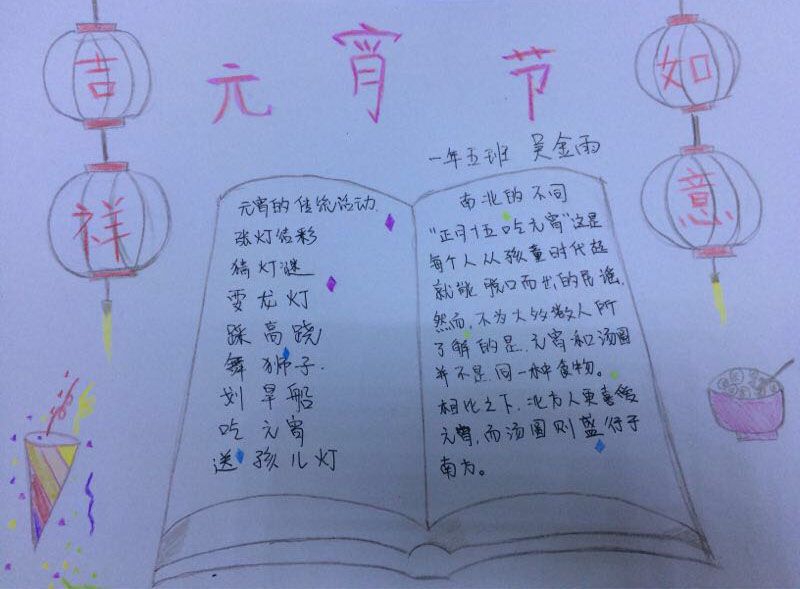 吉祥
元宵节
如意
一年五班 吴金雨
元宵的传统活动
张灯结彩
猜灯谜
耍龙灯
踩高跷
舞狮子.
划旱船
吃元宵
送孩儿灯
南北的不同
“正月十五吃元宵”这是
每个人从孩童时代起
就能脱口而出的民谣.
然而,不为大多数人所
了解的是.元宵和汤圆
并不是.同一种食物。
相比之下.北方人更喜爱
元宵,而汤圆则盛行于
南方。